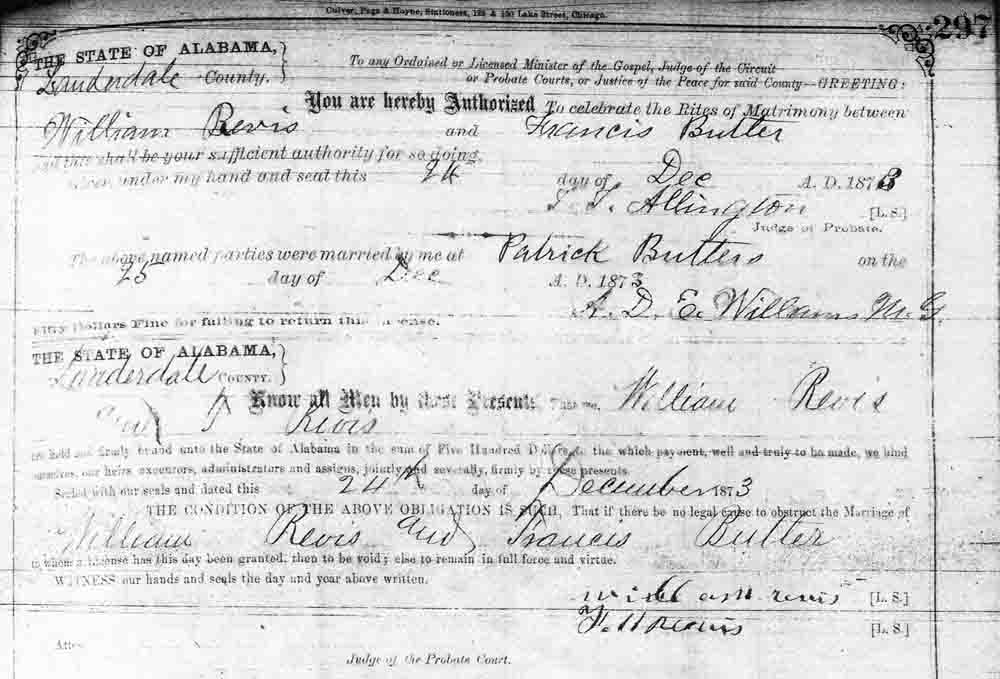 Culver, Page & Hoyne, Stationers, 128 & 130 Lake Street, Chicago.
297
THE STATE OF ALABAMA,
Lauderdale County.
To any Ordained or Licensed Minister of the Gospel, Judge of the Circuit
or Probate Courts, or Justice of the Peace for said County—GREETING:
You are hereby Authorized To celebrate the Rites of Matrimony between
William Revis and Francis Butler
and this shall be your sufficient authority for so doing.
Given under my hand and seal this 24 day of Dec A. D. 1873
T. T. Allington [L. S.]
Judge of Probate.
The above named parties were married by me at Patrick Butlers on the
25 day of Dec A. D. 1873
A. D. E. Williams M. G.
Fifty Dollars Fine for failing to return this license.
THE STATE OF ALABAMA,
Lauderdale COUNTY.
Know all Men by these Presents, That we, William Revis
and Revis
are held and firmly bound unto the State of Alabama in the sum of Five Hundred Dollars, to the which payment, well and truly to be made, we bind
ourselves, our heirs, executors, administrators and assigns, jointly and severally, firmly by these presents.
Sealed with our seals and dated this 24th day of December 1873
THE CONDITION OF THE ABOVE OBLIGATION IS SUCH, That if there be no legal cause to obstruct the Marriage of
William Revis and Francis Butler
to whom a license has this day been granted, then to be void; else to remain in full force and virtue.
WITNESS our hands and seals the day and year above written.
revis [L. S.]
[L. S.]
Attest
Judge of the Probate Court.